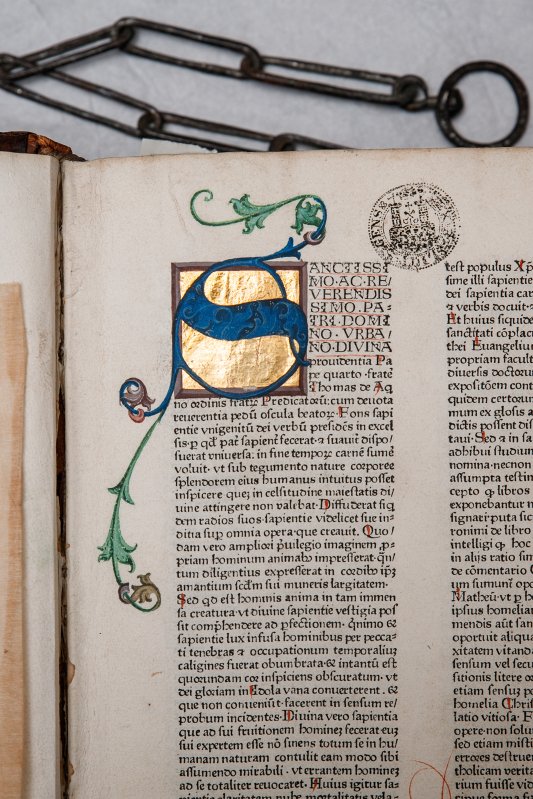 SANCTISSI
MO·AC·RE/
VERENDIS
SIMO PA-
TRI DOMI
NO VRBA/
NO DIVINA
prouidentia Pa
pe quarto fratꝰ
Thomas de Aq
no ordinis fratꝝ Predicatoꝝ: cum deuota
reuerentia pedū oscula beatoꝝ. Fons sapi
entie vnigenitū dei verbū presidēs in excel
sis. ꝑ qd̄ pať sapienť fecerat & suauiť dispo/
suerat vniuersa: in fine tempoꝝ carnē sumē
voluit. vt sub tegumento nature corporee
splendorem eius humanus intuitus posset
inspicere quē in celsitudine maiestatis di/
uine attingere non valebat. Diffuderat siq̄
dem radios suos sapientie videlicet sue in-
ditia sup omnia opera que creauit. Quo/
dam vero ampliori puilegio imaginem ꝓ-
priam hominum animabꝰ impresserat. qn̄/
tum diligentius expresserat in cordibꝰ ipꝫ
amantium scd̄m sui muneris largitatem.
Sed qd est hominis anima in tam immen
sa creatura vt diuine sapientie vestigia pos
sit comp̄hendere ad pfectionem. q̄nimo &
sapientie lux infusa hominibus per pecca-
ti tenebras & occupationum temporaliū
caligines fuerat obumbrata. & intantū est
quorundam cor insipiens obscuratum. vt
dei gloriam in Edola vana conuerterent. &
que non conueniūt facerent in sensum re/
probum incidentes. Diuina vero sapientia
que ad sui fruitionem hominē fecerat eū
sui expertem esse nō sinens totum se in hu/
manam naturam contulit eam modo sibi
assumendo mirabili. vt errantem hominē
ad se totaliter reuocaret. Huius igitur sa-
test populus Xp
sime illi sapientie
dei sapientia car
& verbis docuit.
Et huius siquide
sanctitati cōplacu
thei Euangelium
propriam facult
diuersis doctor
expositōem cont
quidem certorum
mum ex glosis a
dictis possent dis
taui. Sed & in sa
adhibui studium
nomina. necnon
assumpta testim
cepto q libros
exponebantur n
signari: puta sic
ronimi de libro
intelligi q hoc
in aliis ratio sim
de cōmentario C
um sumunt opo
Matheū. vt p h
ipsius homeliar
mendis aūt san
oportuit aliqua
xitatem vitand
sensum vel secu
sitionis litere or
etiam sensū po
homelia Chris
latio vitiosa. F
opere non solum
sed etiam misti
errores destruer
tholicam verita
rium fuisse vid